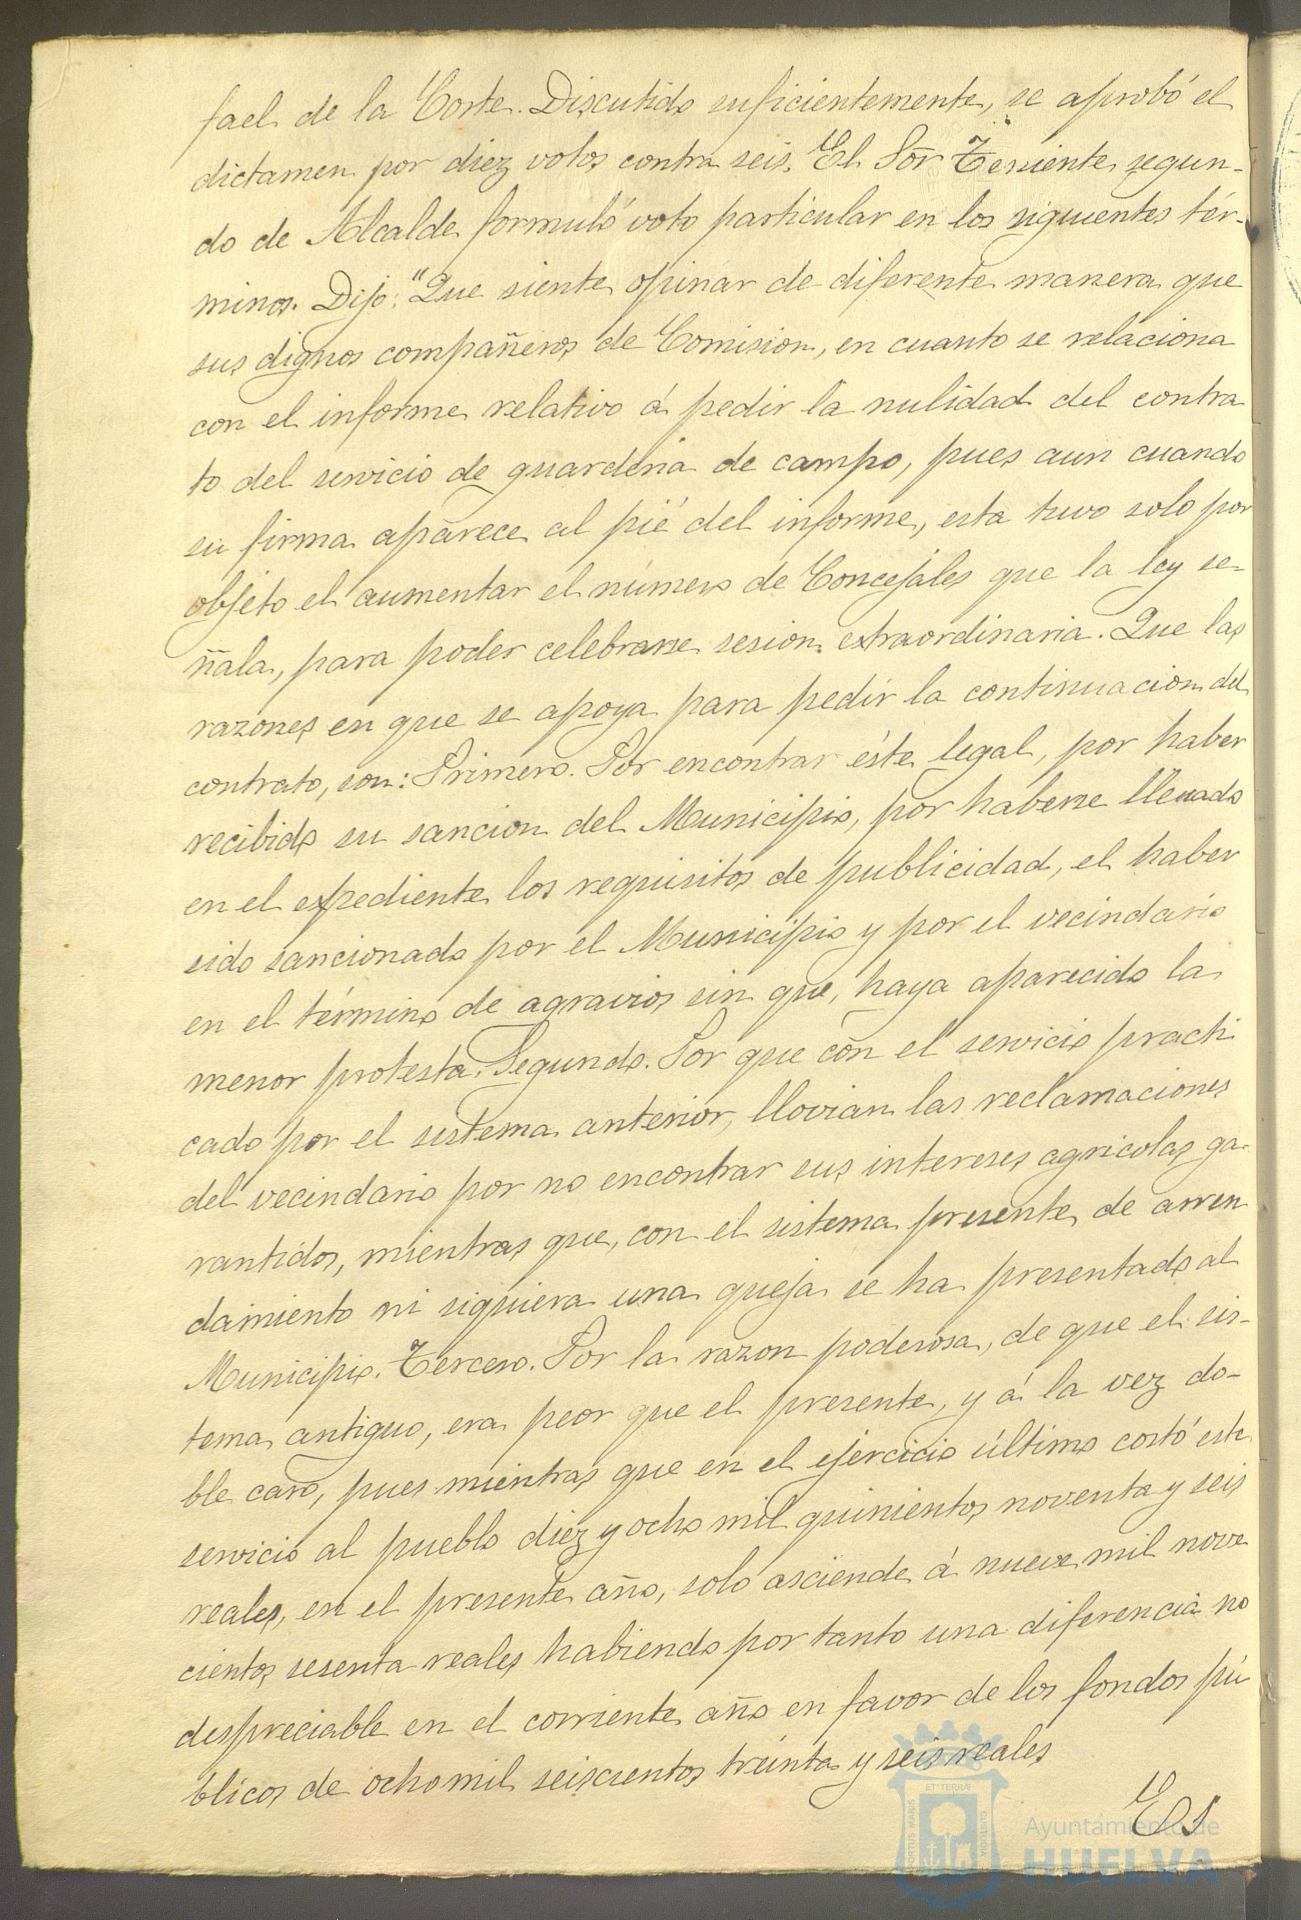 fael de la Corte. Discutido suficientemente, se aprobó el
dictamen por diez votos contra seis. El Sor Teniente segun-
do de Alcalde formuló voto particular en los siguientes tér-
minos. Dijo: "Que siente opinar de diferente manera que
sus dignos compañeros de Comision, en cuanto se relaciona
con el informe relativo á pedir la nulidad del contra
to del servicio de guarderia de campo, pues aun cuando
su firma aparece al pié del informe, esta tuvo solo por
objeto el aumentar el número de Concejales que la ley se-
ñala, para poder celebrarse sesion extraordinaria. Que las
razones en que se apoya para pedir la continuacion del
contrato, son: Primero. Por encontrar éste legal, por haber
recibido su sancion del Municipio, por haberse llenado
en el expediente los requisitos de publicidad, el haber
sido sancionado por el Municipio y por el vecindario
en el término de agravios sin que, haya aparecido la
menor protesta. Segundo. Por que con el servicio practi
cado por el sistema anterior, llovian las reclamaciones
del vecindario por no encontrar sus intereses agricolas ga-
rantidos, mientras que, con el sistema presente de arren
damiento ni siquiera una queja se ha presentado al
Municipio. Tercero. Por la razon poderosa, de que el sis-
tema antiguo, era peor que el presente, y á la vez do-
ble caro, pues mientras que en el ejercicio último costó este
servicio al pueblo diez y ocho mil quinientos noventa y seis
reales, en el presente año, solo asciende á nueve mil nove
cientos sesenta reales habiendo por tanto una diferencia no
despreciable en el corriente año en favor de los fondos pú
blicos de ocho mil seiscientos treinta y seis reales
Es
ET TERRAE
PORTUS MARIS
CUSTODIA
Ayuntamiento de
HUELVA